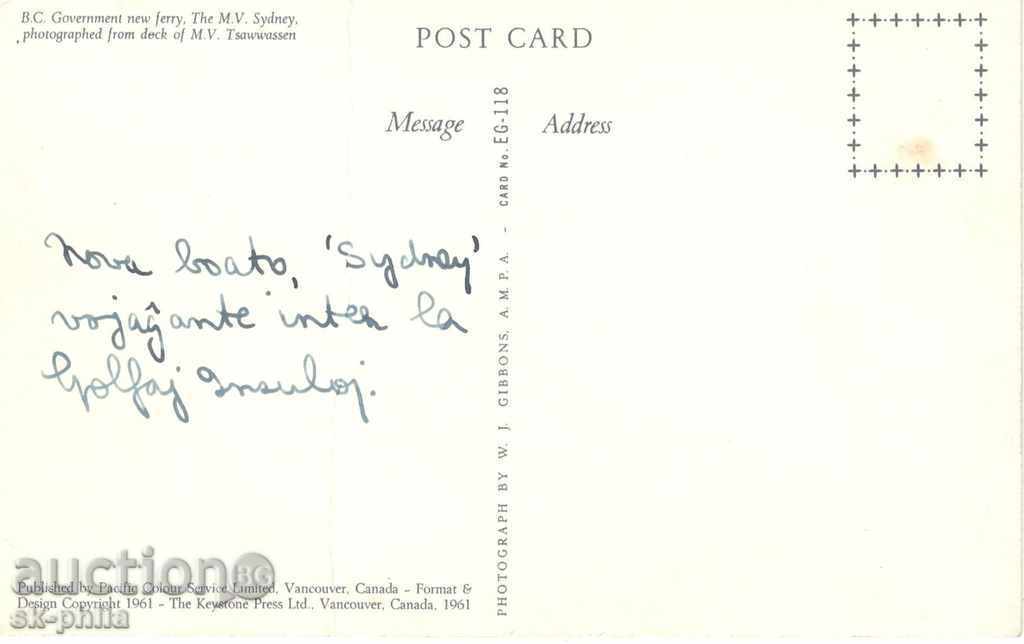 B.C. Government new ferry, The M.V. Sydney,
photographed from deck of M.V. Tsawwassen
POST CARD
Message
Address
CARD No. EG-118
PHOTOGRAPH BY W. J. GIBBONS, A.M.P.A. -
Nova boato, 'Sydney'
vojaĝante inter la
Golfaj Insuloj.
auction BG
Published by Pacific Colour Service Limited, Vancouver, Canada – Format &
Design Copyright 1961 – The Keystone Press Ltd., Vancouver, Canada, 1961
sk-phila